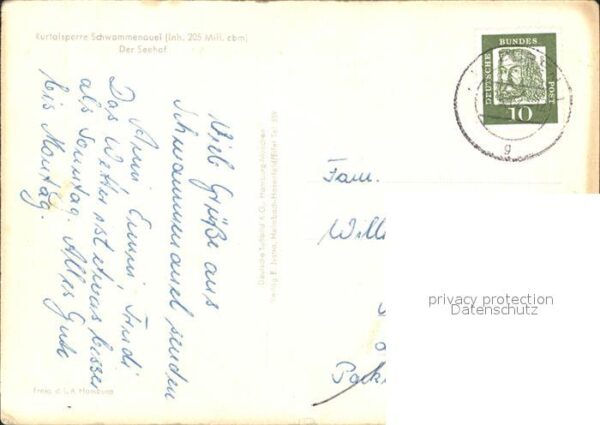 Rurtalsperre Schwammenauel (Inh. 205 Mill. cbm)
Der Seehof
Viele Grüße aus
Schwammenauel senden
Anni Emmi Trudi
Das Wetter ist etwas besser
als Sonntag. Alles Gute
bis Montag.
Freig. d. L.A. Hamburg
DEUTSCHE BUNDESPOST
10
g
Fam.
Will
privacy protection
Datenschutz